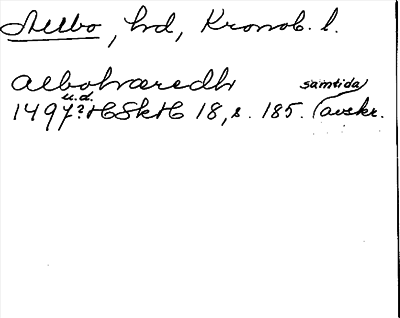 Allbo, hd, Kronob. l.
aelbohæredh
samtida
u.d.
1497? HSkH 18, s. 185. (avskr.